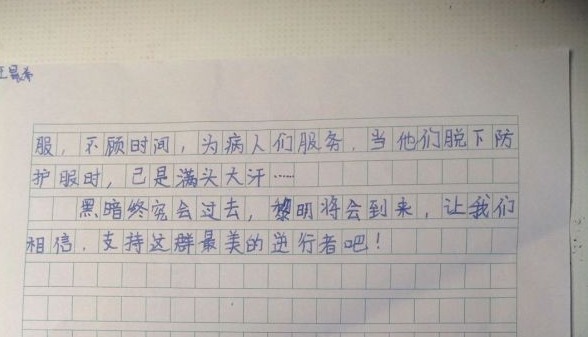 服，不顾时间，为病人们服务．当他们脱下防
护服时，已是满头大汗……
黑暗终究会过去，黎明将会到来，让我们
相信．支持这群最美的逆行者吧！